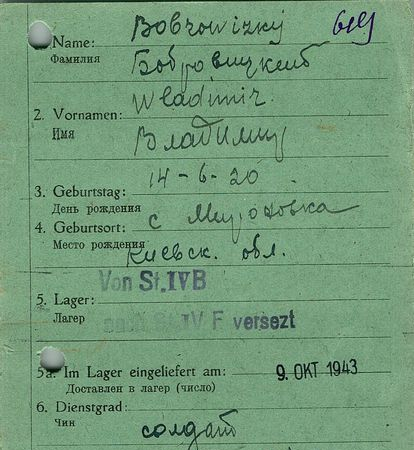 Bobrowizkij
Name:
Фамилия
Wladimir.
2. Vornamen:
Имя
Владимир
14-6-20
3. Geburtstag:
День рождения
с Мироновка
4. Geburtsort:
Место рождения
Киевск. обл.
Von St.IVB
5. Lager:
Лагерь
nach St.IV F versezt
5a. Im Lager eingeliefert am: 9. OKT 1943
Доставлен в лагерь (число)
6. Dienstgrad:
Чин
солдат